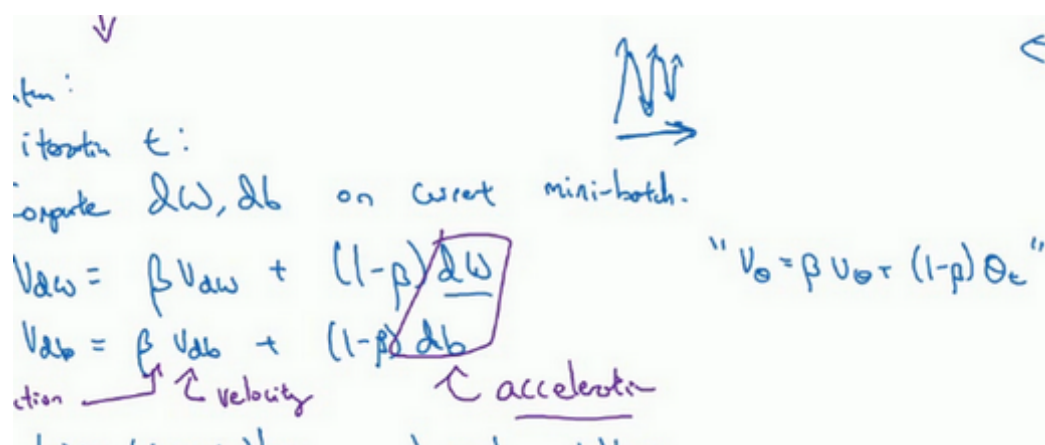 iteration t:
Compute dW, db on current mini-batch.
V_dw = β V_dw + (1-β) dW
"V_θ = β V_θ + (1-β) θ_t"
V_db = β V_db + (1-β) db
velocity
acceleration